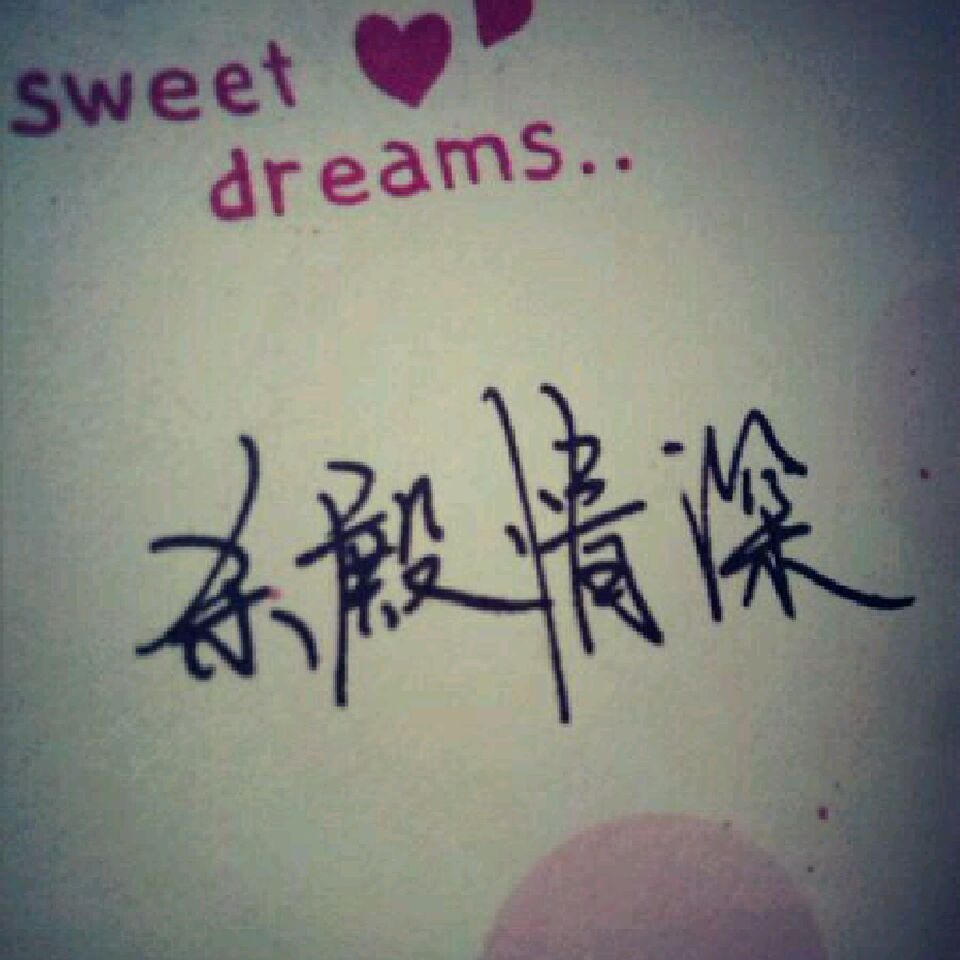 sweet
dreams..
殿情深